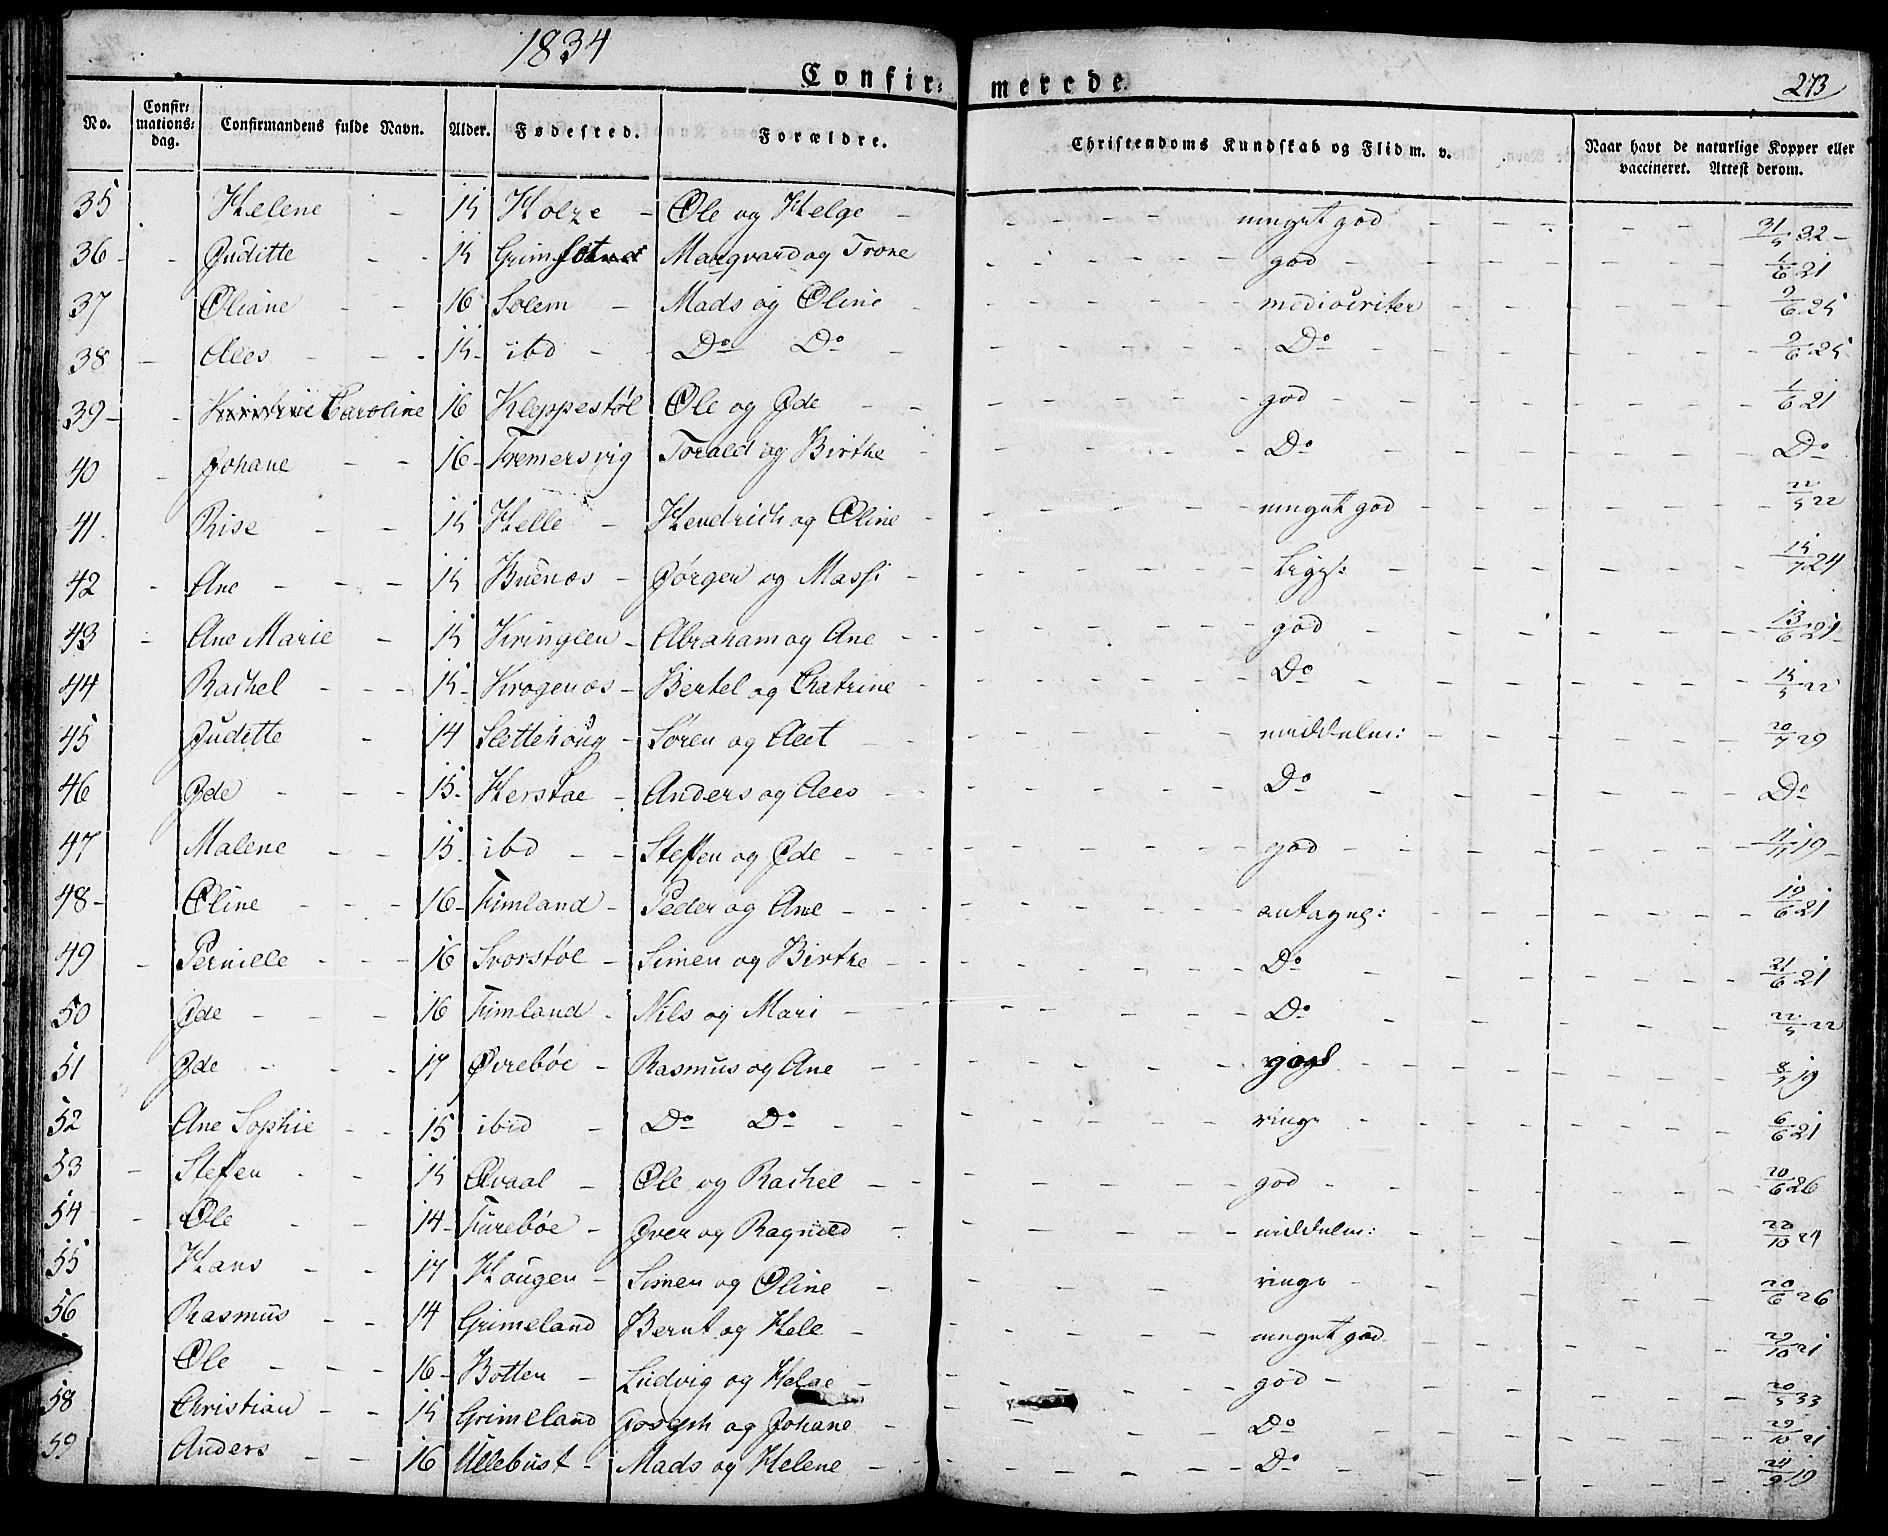 1834
Confir= merede.
273
No. Confir= mations= dag. Confirmandens fulde Navn. Alder. Fødested. Forældre. Christendoms Kundskab og Flid m. v. Naar havt de naturlige Kopper eller vaccineret. Attest derom.
35 Helene - 15 - Ole og Helge - meget god - 31/5 32 -
36 - Juditte - 15 Marqvard og Trone - god - 1/6 21
37 Oliane - 16 Solem - Mads og Oline - mediocriter - 9/6 25
38 - - 15 - ibd - Do Do - Do - 9/6 25
39 - Caroline 16 Kleppestøl Ole og Øde - god - 1/6 21
40 Johane - 16 - Tremersvig Torald og Birthe - Do - Do
41. Rise - 15 Helle - Hendrich og Oline - meget god - 22/5 22
42 - Ane - 15 - Jørgen og Massi - - 15/7 24
43 - Ane Marie - 15 Kringlen - Abraham og Ane - god - 13/6 21 -
44 Rachel - 15 - Krogenæs - Bertel og Chatrine - Do - 15/5 22
45 Juditte - 14 Slettehoug - Søren og - 20/7 29
46 Øde - 15 - Herstae - Anders og - Do - Do
47 Malene - 15 - ibd - Steffen og Øde - god - 4/11 19 -
48 - Oline - 16 - Fimland - Peder og Ane - antagel: - 19/6 21
49 - Pernille - 16 Svorstøl - Simen og Birthe - Do - 21/6 21
50 Øde - 16 Fimland - Nils og Mari - Do - 22/5 22
51 Øde - 17 Øvrebøe - Rasmus og Ane - - 8/7 19
52 Ane Sophie - 15 ibid - Do Do - ringe - 6/6 21
53 - Steffen - 15 Qvaal - Ole og Rachel - god - 20/6 26
54 - Ole - 14 - Furebøe - Iver og Ragnild - - 22/10 24
55 Hans - 17 Hougen - Simen og Oline - ringe - 20/6 26
56 Rasmus - 14 Grimeland Bernt og Hele - meget god - 29/10 21
Ole - 16 - Botten - Ludvig og Helge - god - 20/5 33
58 Christian - 15 Grimeland Joseph og Johane - Do - 29/10 21
59 Anders - 16 Ullebust - Mads og Helene - Do - 24/9 19